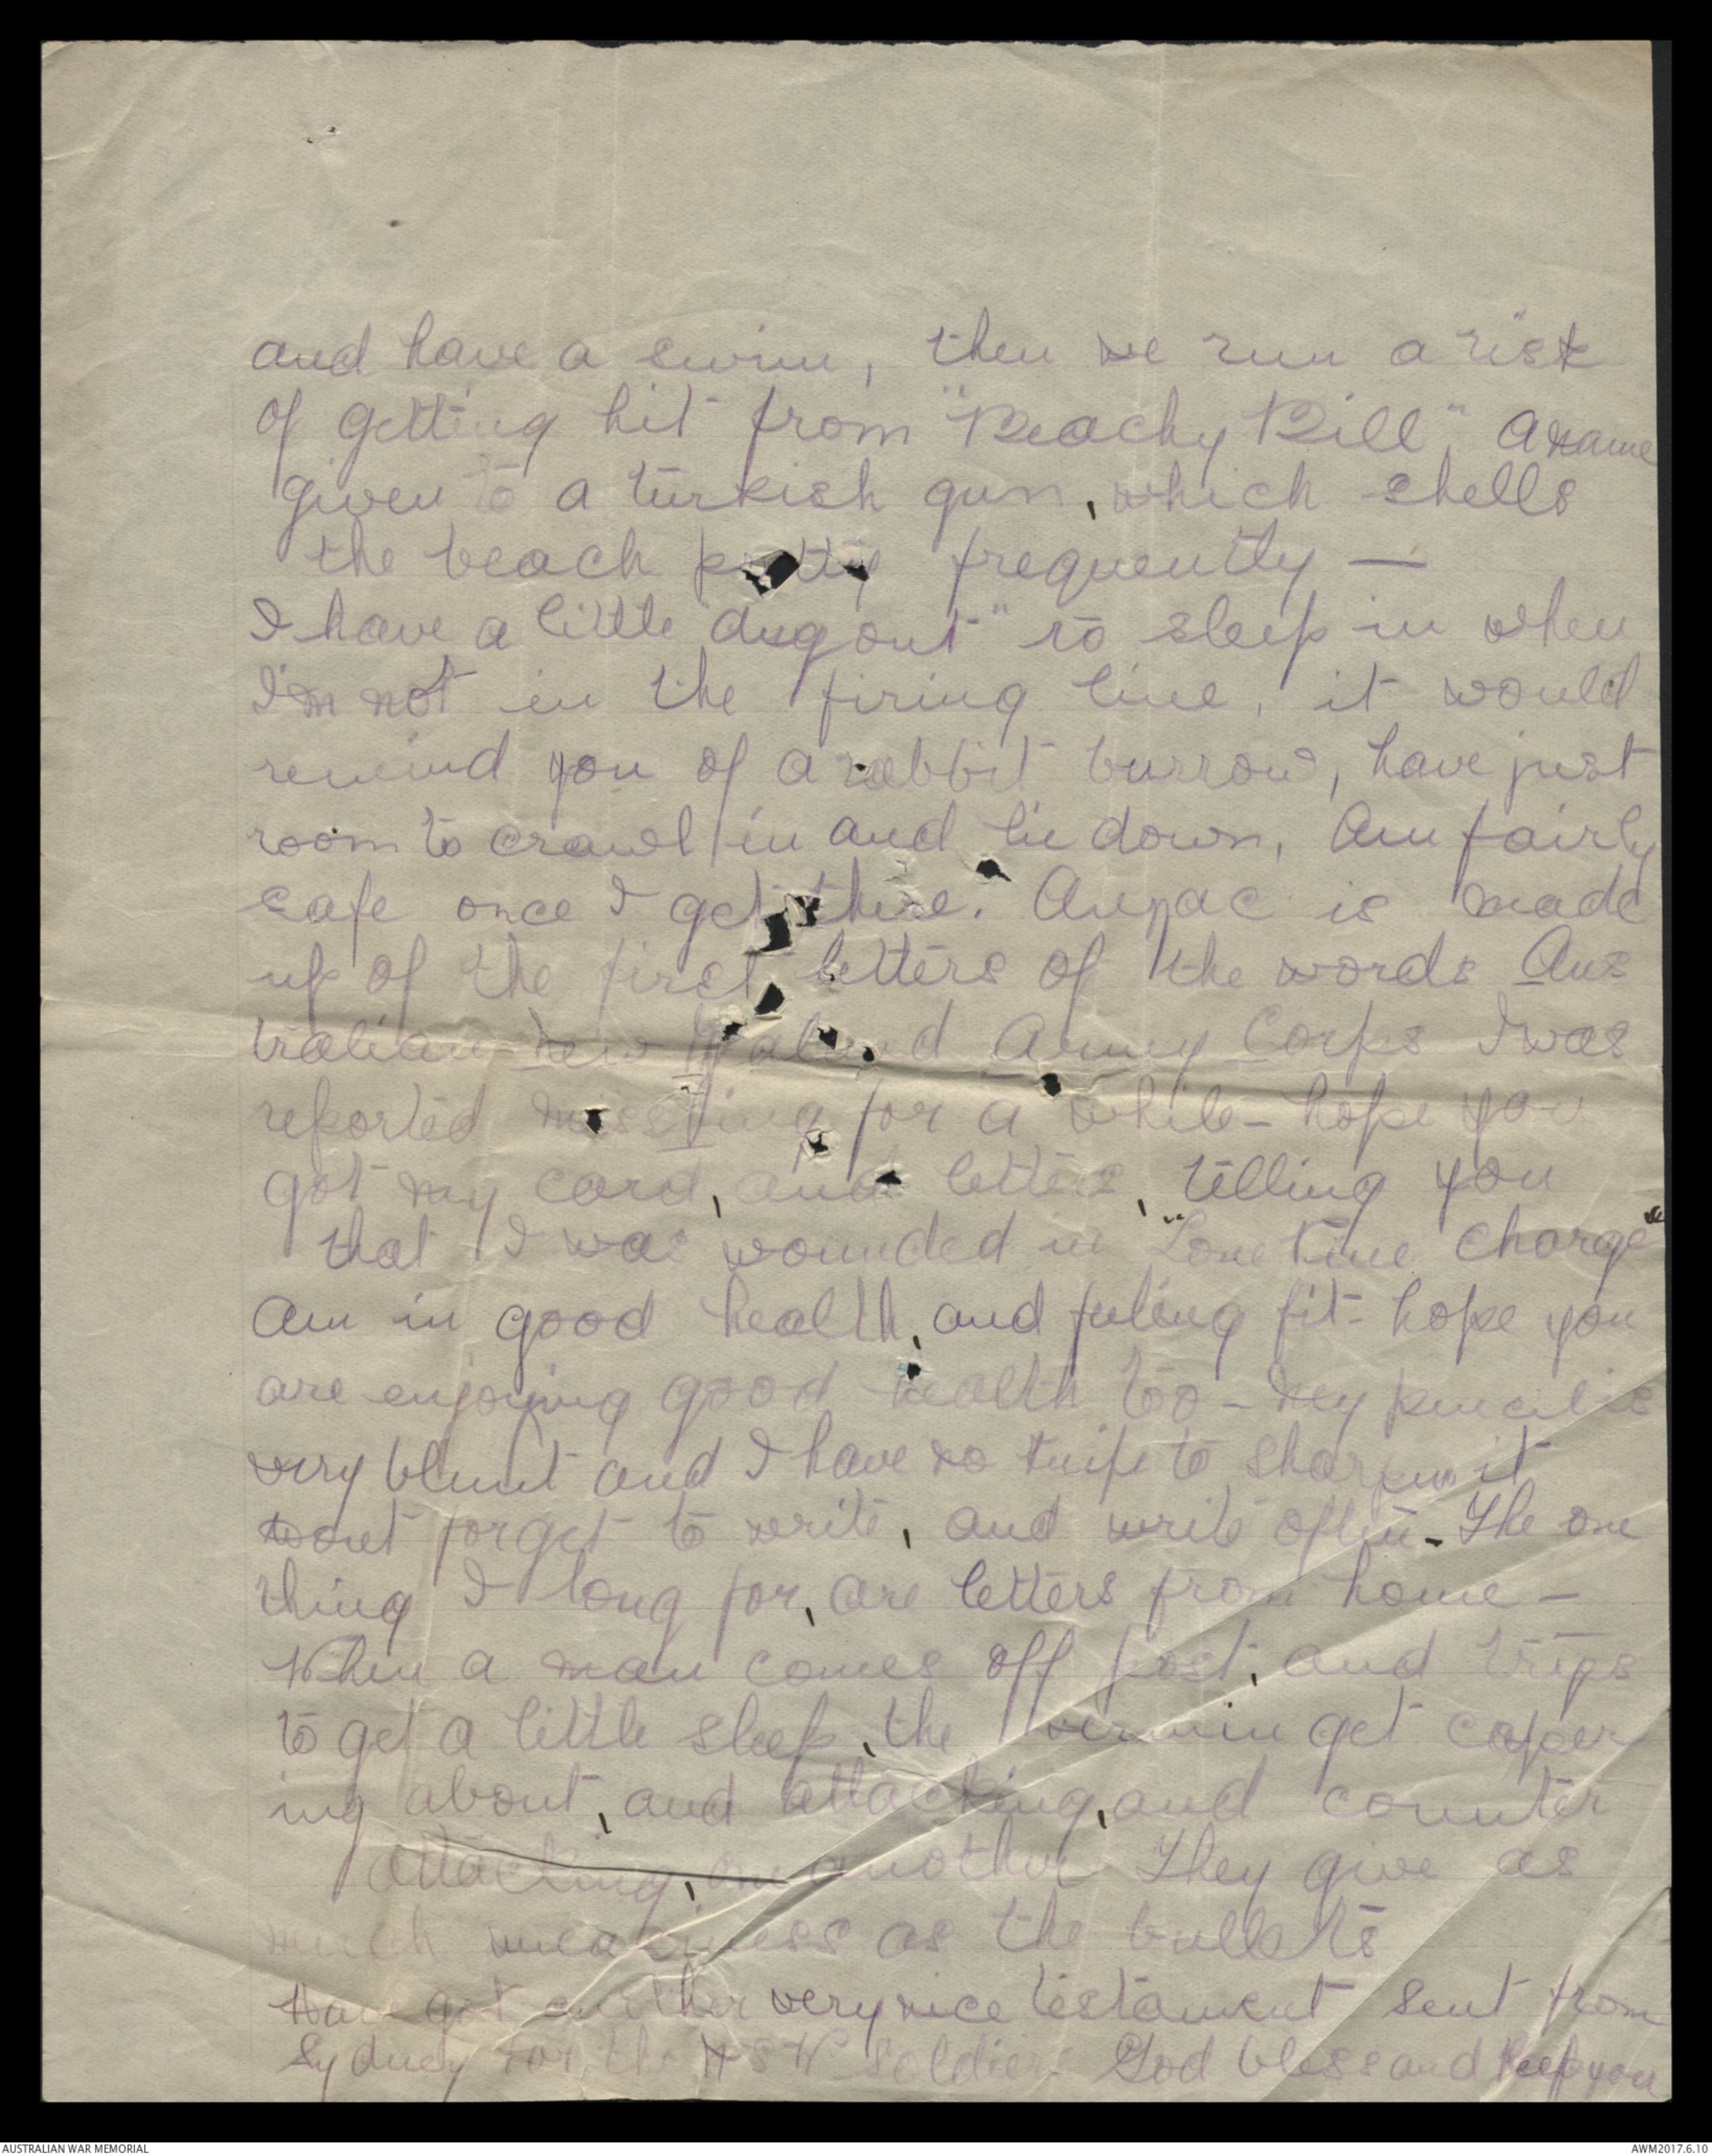 and have a swim, then we run a risk
of getting hit from "Beachy Bill", a name
given to a turkish gun, which shells
the beach pretty frequently —
I have a little "dug out" to sleep in when
I'm not in the firing line, it would
remind you of a rabbit burrow, have just
room to crawl in and lie down, Am fairly
safe once I get there. Anzac is made
up of the first letters of the words Aus
tralian New Zealand Army Corps I was
reported missing for a while - hope you
got my card, and letters, telling you
that I was wounded in "Lone Pine charge"
Am in good health, and feeling fit - hope you
are enjoying good health too - My pencil is
very blunt and I have no knife to sharpen it
dont forget to write, and write often - The one
thing I long for, are letters from home -
When a man comes off post, and trys
to get a little sleep, the vermin get caper
ing about, and attacking, and counter
attacking, one another They give as
much as the bullets
Have got another very nice testament sent from
Sydney for the N S W Soldiers God bless and keep you
AUSTRALIAN WAR MEMORIAL
AWM2017.6.10